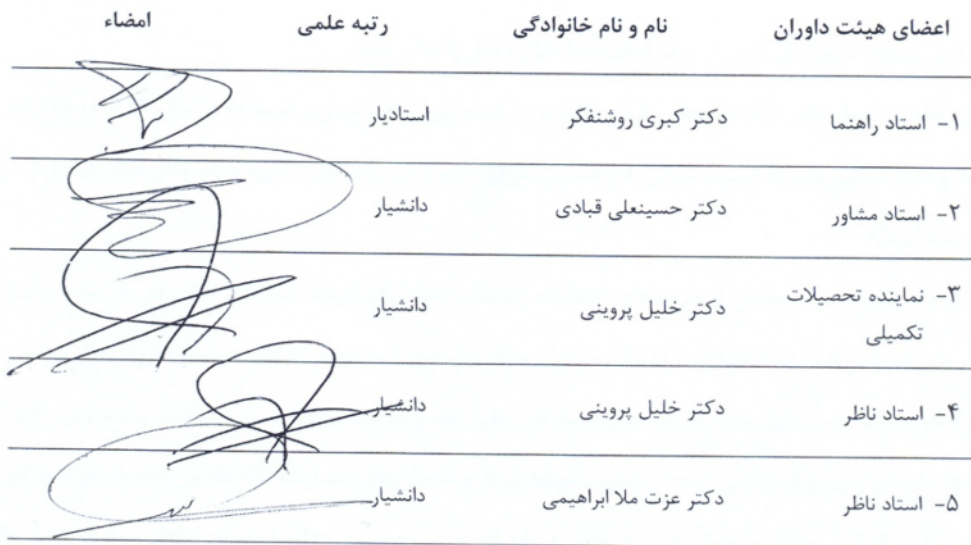 اعضای هیئت داوران نام و نام خانوادگی رتبه علمی امضاء
۱- استاد راهنما دکتر کبری روشنفکر استادیار
۲- استاد مشاور دکتر حسینعلی قبادی دانشیار
۳- نماینده تحصیلات تکمیلی دکتر خلیل پروینی دانشیار
۴- استاد ناظر دکتر خلیل پروینی دانشیار
۵- استاد ناظر دکتر عزت ملا ابراهیمی دانشیار